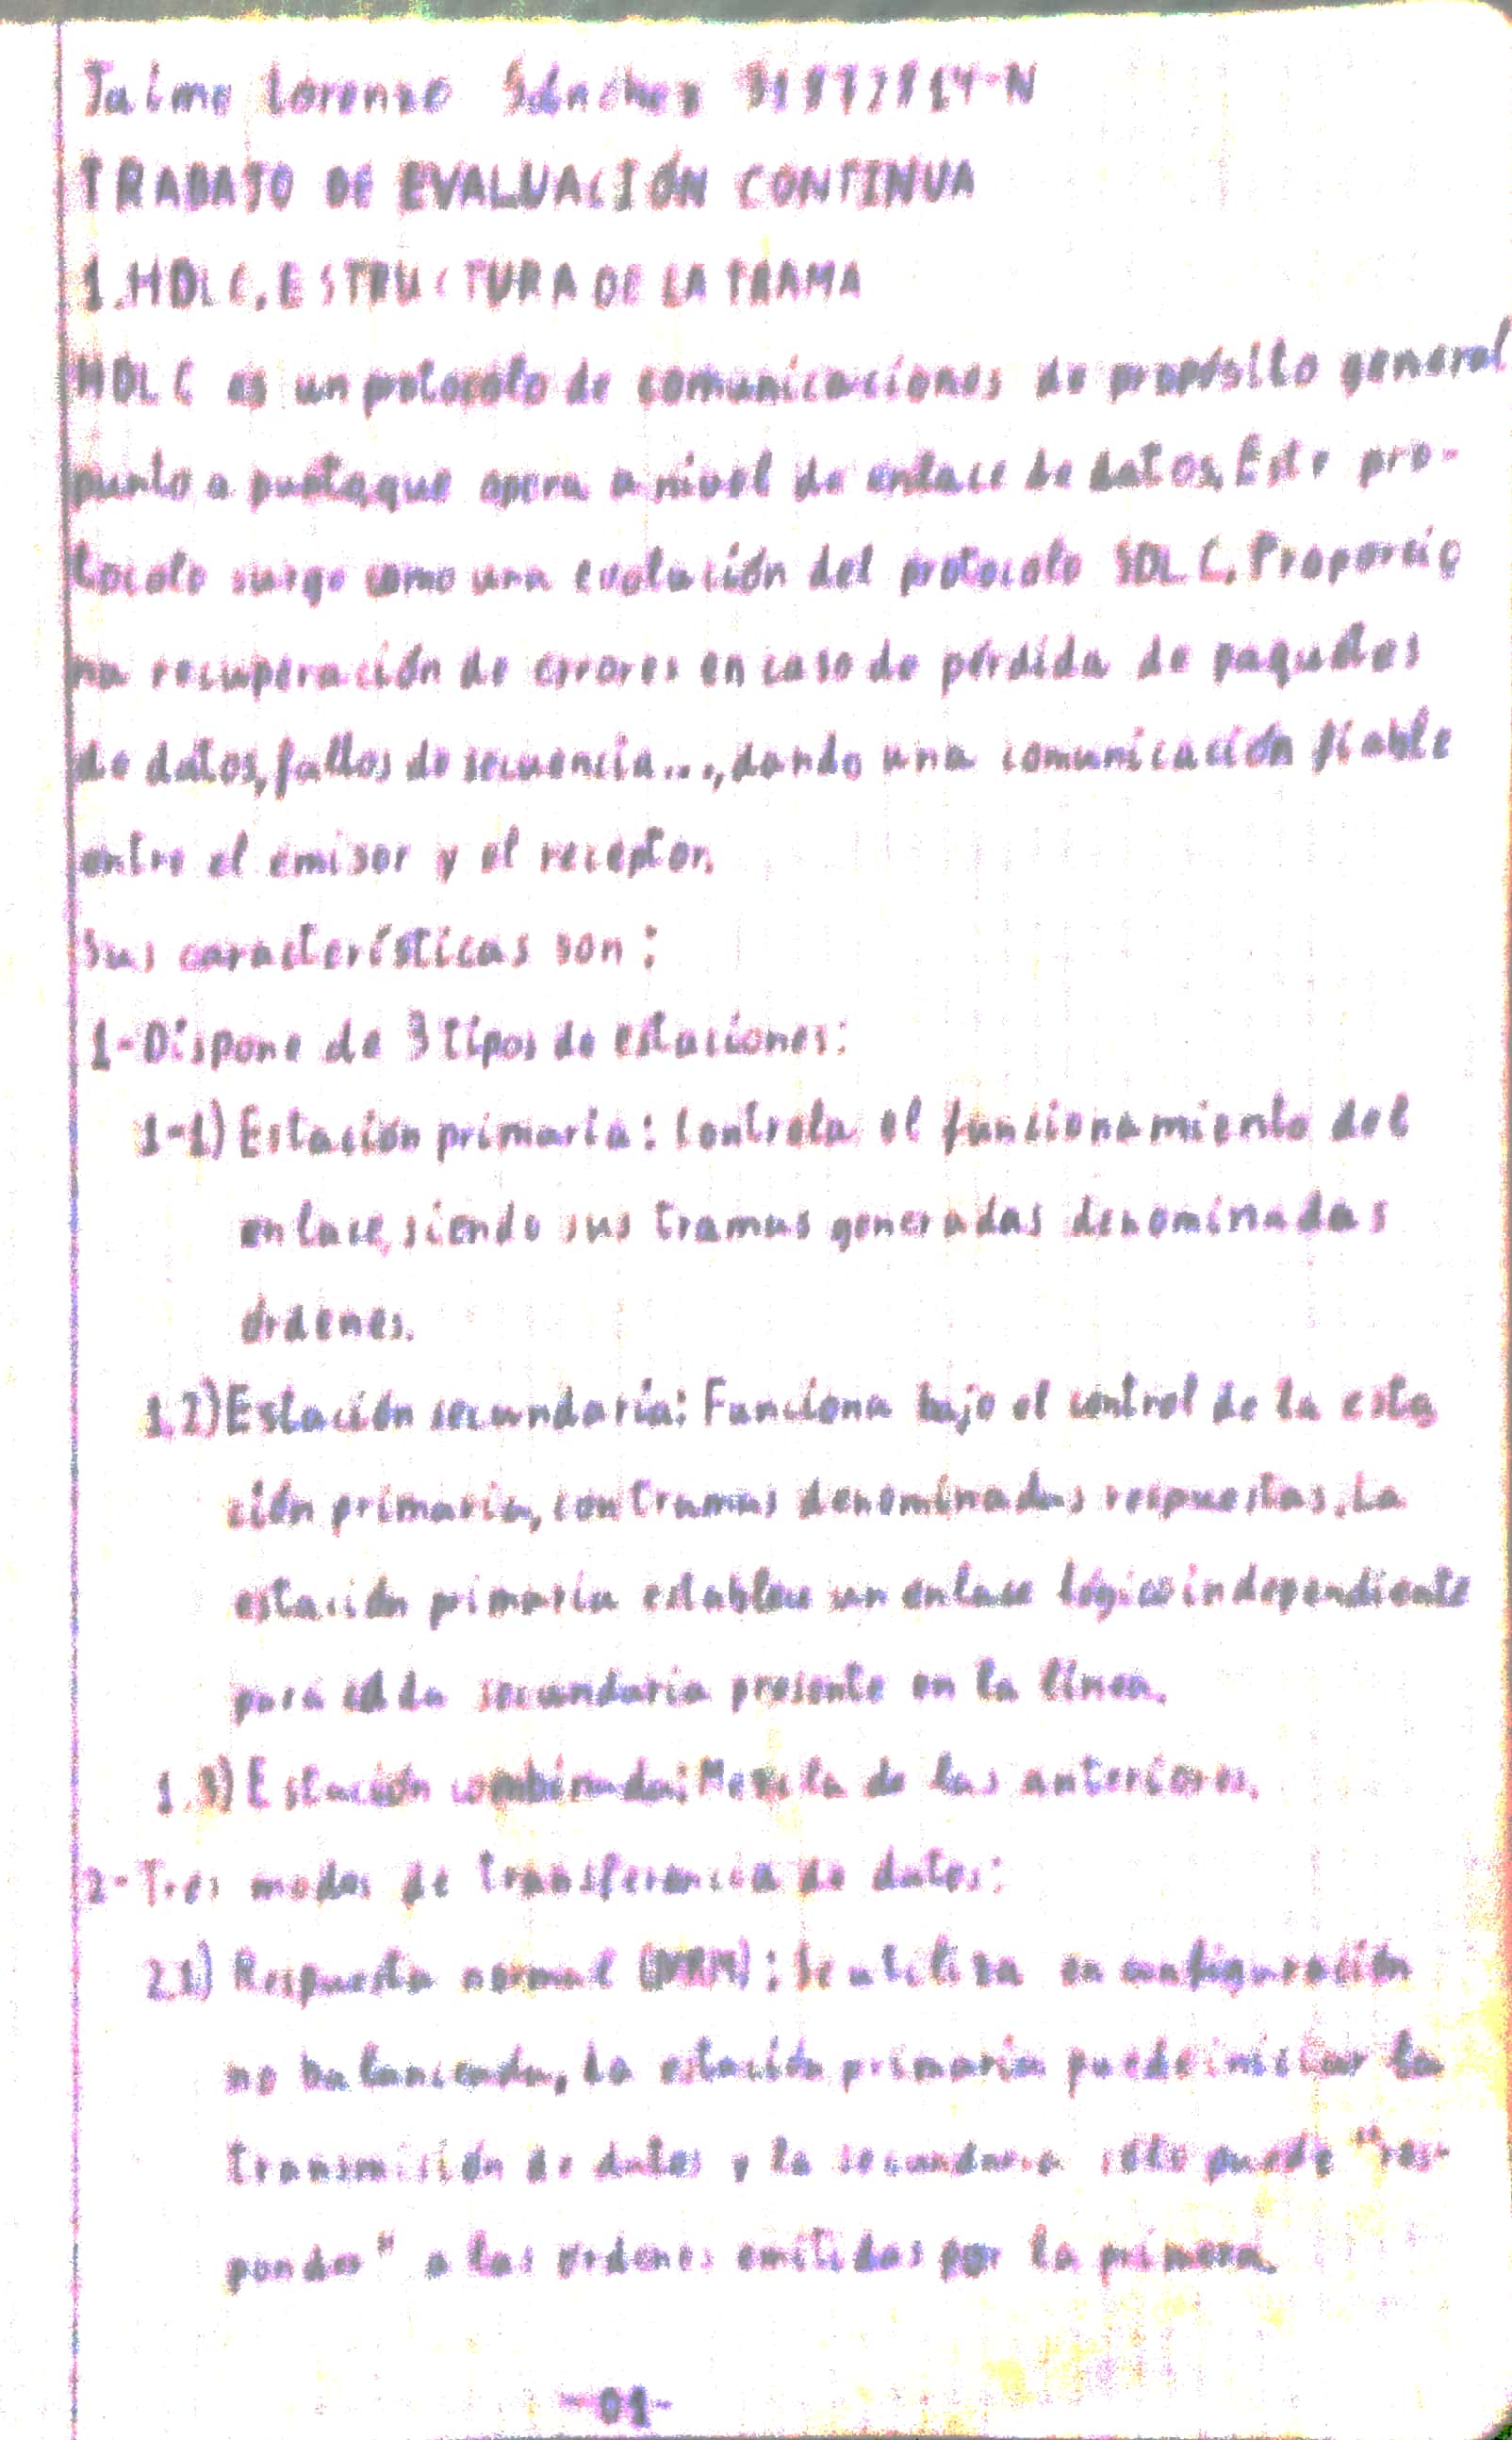 Jaime Lorenzo Sánchez
TRABAJO DE EVALUACIÓN CONTINUA
1.HDLC.ESTRUCTURA DE LA TRAMA
HDLC es un protocolo de comunicaciones de propósito general
punto a punto,que opera a nivel de enlace de datos.Este pro-
tocolo surge como una evolución del protocolo SDLC.Proporcio
na recuperación de errores en caso de pérdida de paquetes
de datos,fallos de secuencia...,dando una comunicación fiable
entre el emisor y el receptor.
Sus características son:
1-Dispone de 3 tipos de estaciones:
1-1)Estación primaria: Controla el funcionamiento del
enlace,siendo sus tramas generadas denominadas
órdenes.
1.2)Estación secundaria: Funciona bajo el control de la esta
ción primaria,con tramas denominadas respuestas.La
estación primaria establece un enlace lógico independiente
para cada secundaria presente en la línea.
1.3)Estación combinada: Mezcla de las anteriores.
2-Tres modos de transferencia de datos:
2.1) Respuesta normal (NRM): Se utiliza en configuración
no balanceada.La estación primaria puede iniciar la
transmisión de datos y la secundaria sólo puede "res-
ponder" a las órdenes emitidas por la primera.
-01-